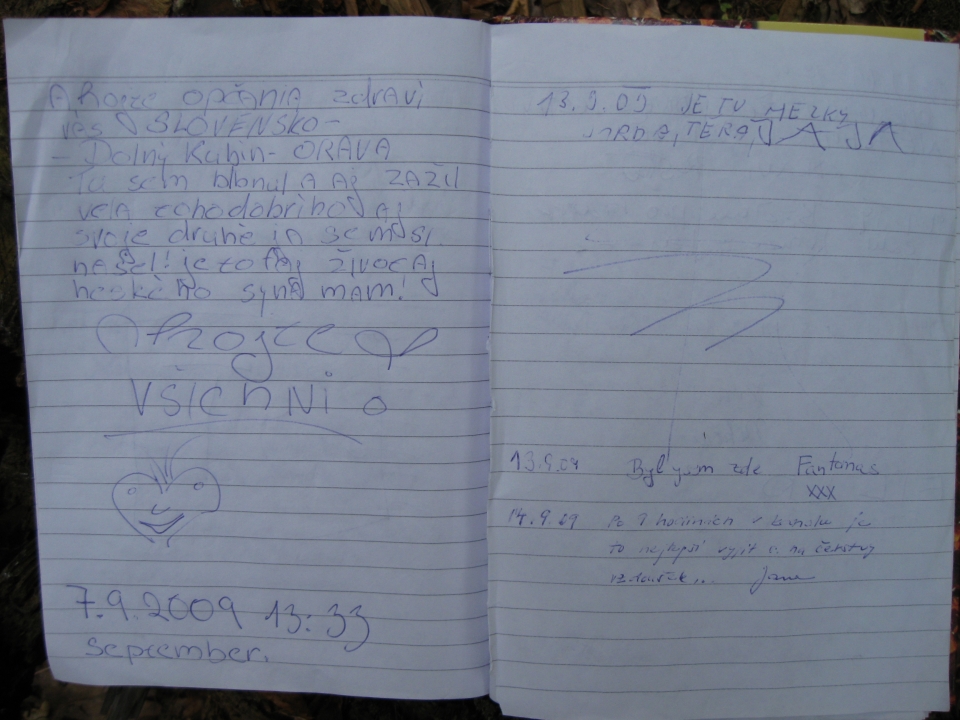 Ahojte opčania zdravi
vás SLOVENSKO-
- Dolný Kubin - ORAVA
Tu sem blbnul A Aj ZAŽIL
velA tohodobriho Aj
svoje druhé in sem si
našel! je to faj život Aj
heského synA mám!
Ahojte
VŠICHNI
7.9.2009 13:33
september.
13.9.09 JE TU HEZKY
JARDA, TERA, JÁ JA
13.9.09 Byl jsem zde Fantomas
XXX
14.9.09 Po 9 hodinách v je
to nejlepší vyjít si na čerstvý
vzdoušek... Jana